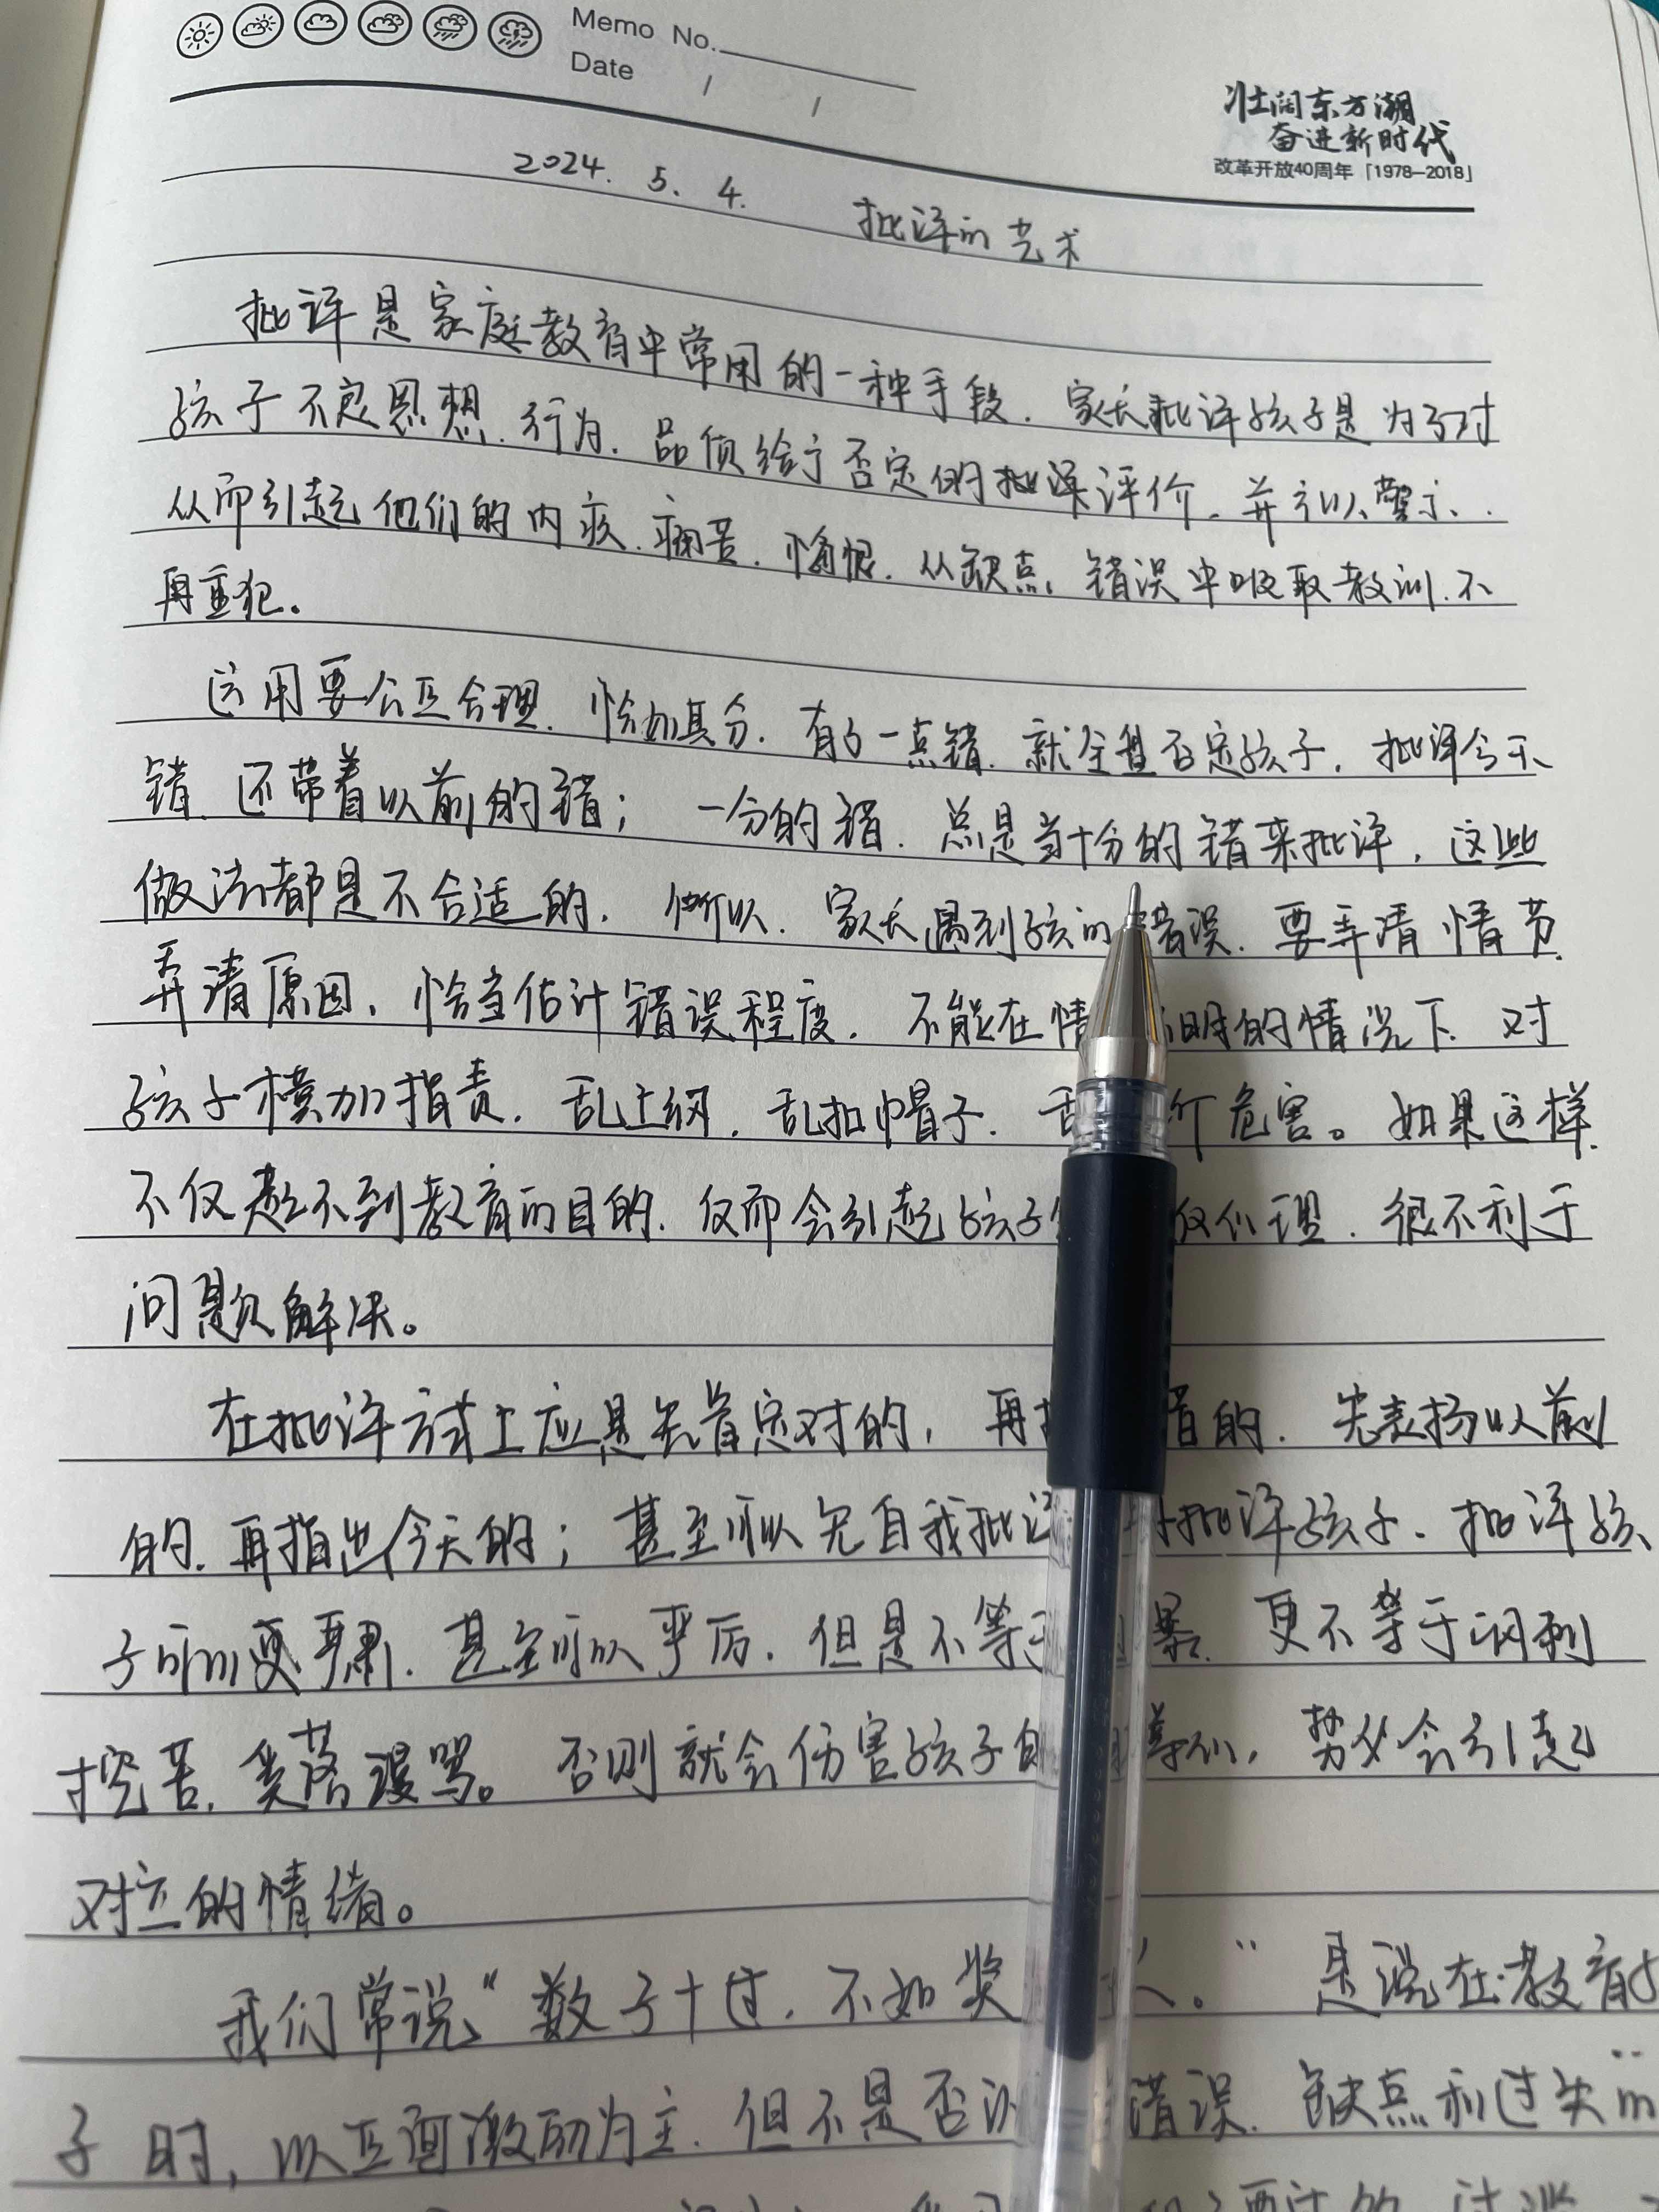 Memo No.
Date / /
壮阔东方潮
奋进新时代
改革开放40周年「1978—2018」
2024. 5. 4. 批评的艺术
批评是家庭教育中常用的一种手段.家长批评孩子是为了对
孩子不良思想.行为.品质给予否定的批评评价.并予以警示.
从而引起他们的内疚.痛苦.悔恨.从缺点.错误中吸取教训.不
再重犯。
运用要公正合理.恰如其分.有了一点错.就全盘否定孩子.批评今天
错.还带着以前的错;一分的错.总是当十分的错来批评,这些
做法都是不合适的.所以.家长遇到孩的错误.要弄清情节.
弄清原因,恰当估计错误程度.不能在情 明的情况下.对
孩子横加指责.乱上纲.乱扣帽子. 危害。如果这样.
不仅起不到教育的目的.反而会引起孩子 理.很不利于
问题解决。
在批评方式上应是先肯定对的,再 的.先表扬以前
的.再指出今天的;甚至可以先自我批 批评孩子.批评孩
子可以严肃.甚至可以严厉.但是不等 暴.更不等于讽刺
挖苦.奚落谩骂。否则就会伤害孩子 ,势必会引起
对立的情绪。
我们常说“数子十过,不如奖 。”是说在教育
子时,以正面激励为主.但不是否 错误.缺点和过失的